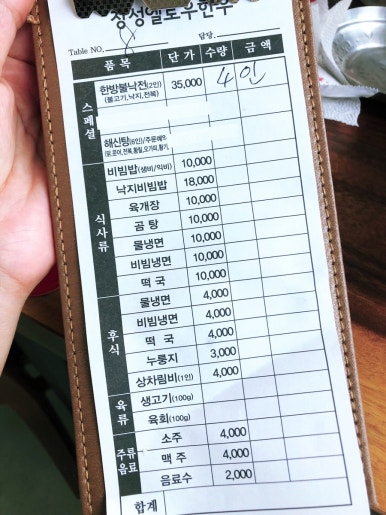 장성옐로우한우
Table NO. 8 담당.
품 목 단 가 수량 금 액
스페셜
한방불낙전(2인) 35,000 4인
(불고기,낙지,전복)
해신탕(6인)/주문예약
식사류
비빔밥(생비/익비) 10,000
낙지비빔밥 18,000
육개장 10,000
곰 탕 10,000
물냉면 10,000
비빔냉면 10,000
떡 국 10,000
후식
물냉면 4,000
비빔냉면 4,000
떡 국 4,000
누룽지 3,000
상차림비(1인) 4,000
육류
생고기(100g)
육회(100g)
주류음료
소주 4,000
맥 주 4,000
음료수 2,000
합계